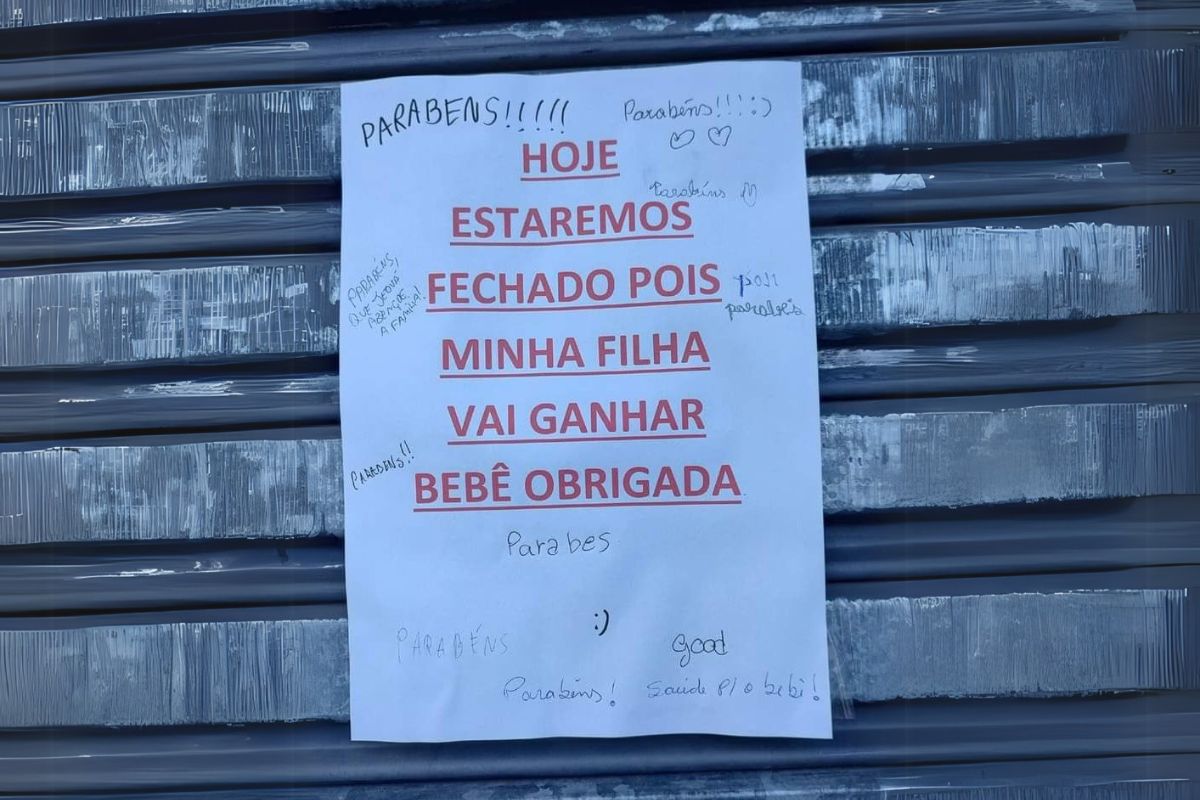 PARABENS!!!!!
Parabéns!!! :)
HOJE
Parabéns
ESTAREMOS
PARABÉNS,
QUE JEOVÁ
ABENÇOE
A FAMÍLIA!
FECHADO POIS
parabéis
MINHA FILHA
VAI GANHAR
PARABENS!!
BEBÊ OBRIGADA
Parabes
:)
PARABÉNS
good
Parabéns!
Saúde P/ o bebê!